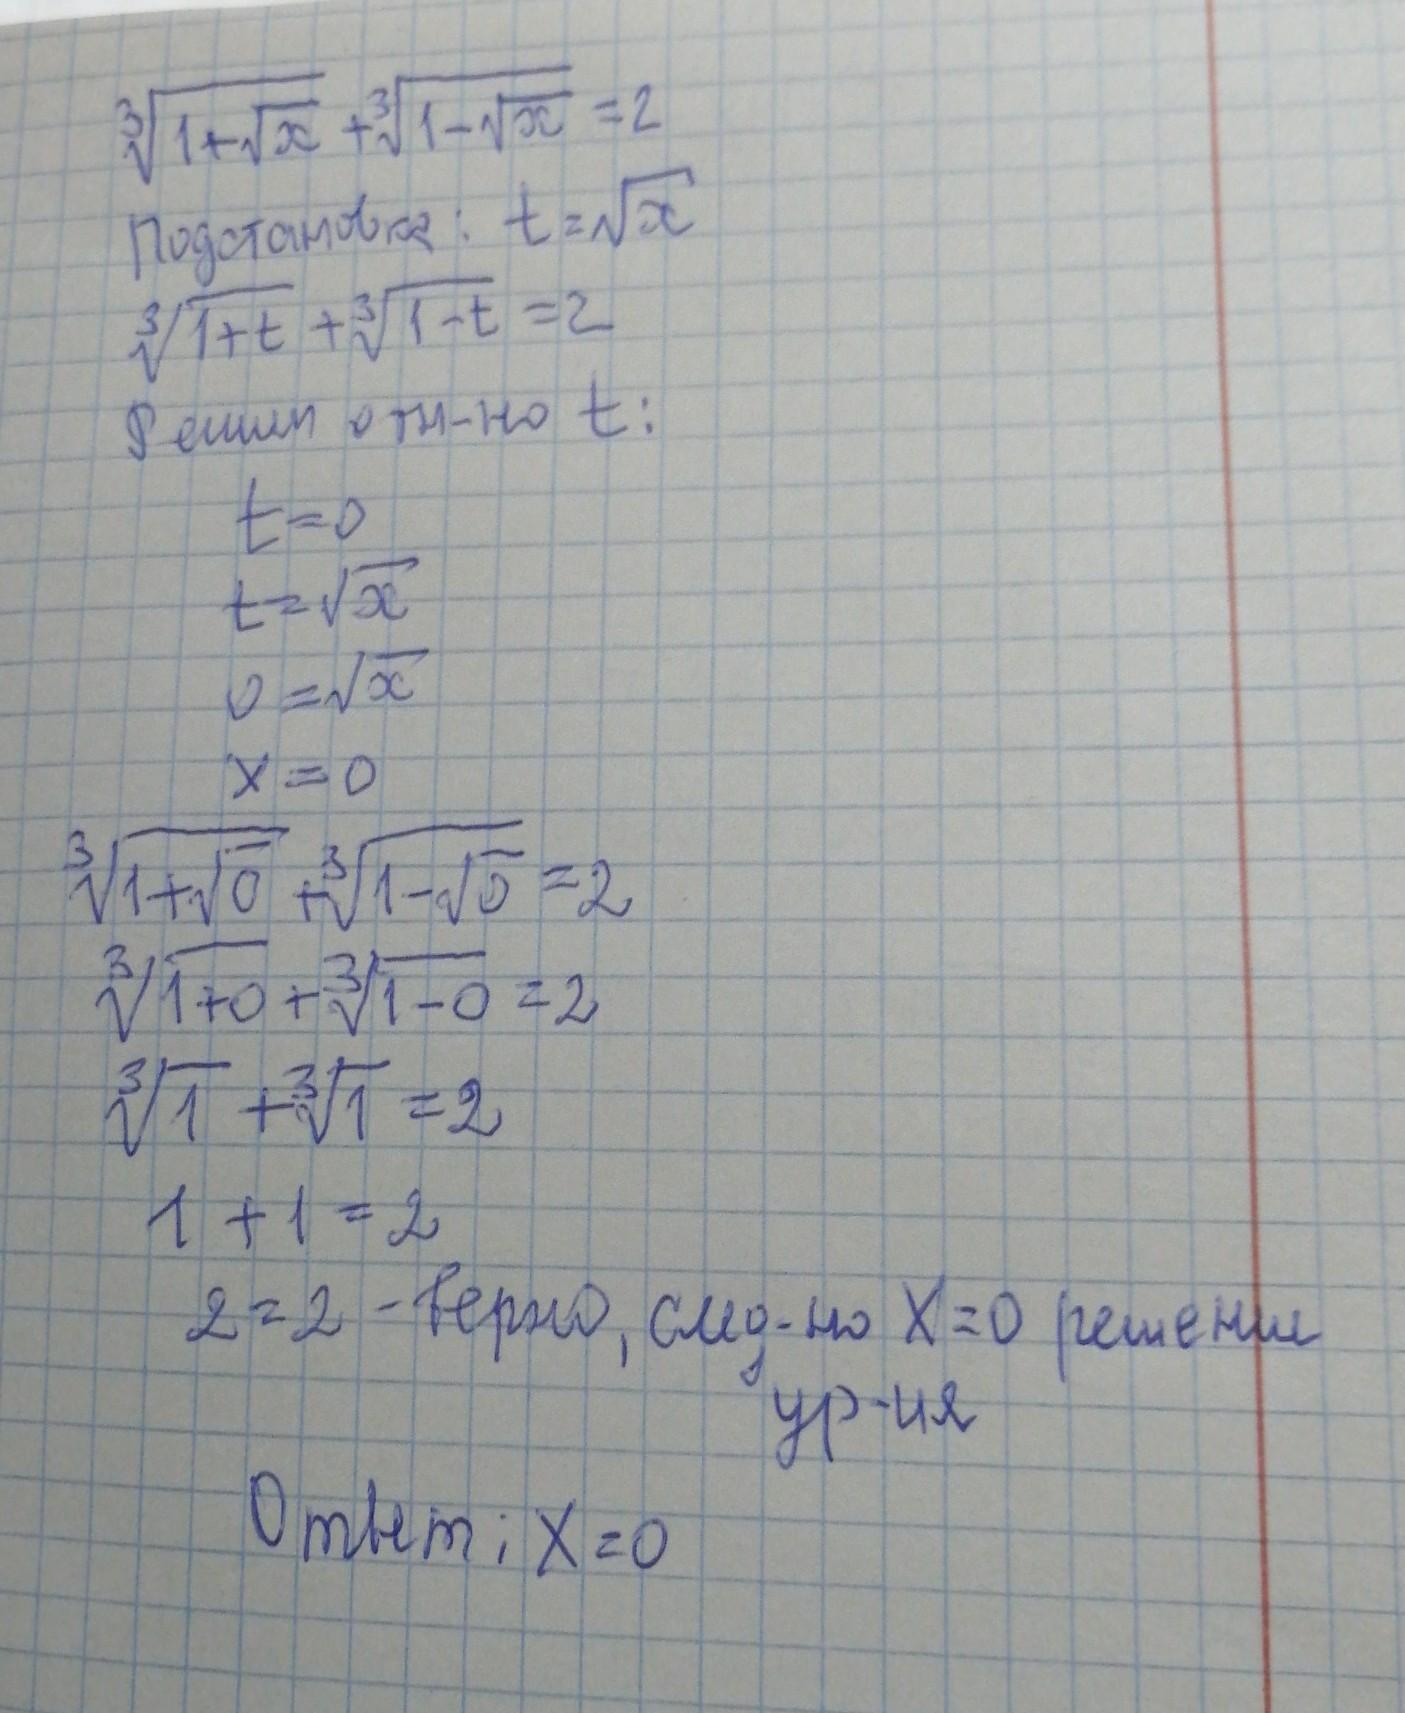 ∛(1+√x) + ∛(1-√x) = 2
Подстановка: t=√x
∛(1+t) + ∛(1-t) = 2
Решим отн-но t:
t=0
t=√x
0=√x
x=0
∛(1+√0) + ∛(1-√0) = 2
∛(1+0) + ∛(1-0) = 2
∛1 + ∛1 = 2
1+1=2
2=2 - верно, след-но X=0 решение
ур-ия
Ответ: X=0